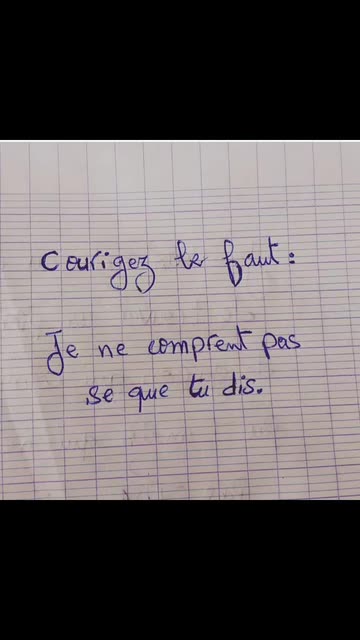 Courigez le faut :
Je ne comprent pas
se que tu dis.